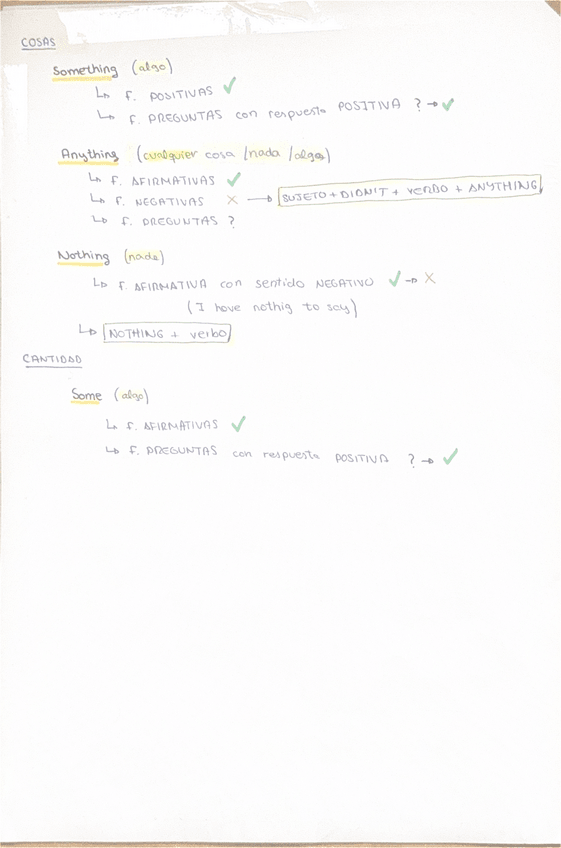 COSAS
Something (algo)
↳ f. POSITIVAS ✓
↳ f. PREGUNTAS con respuesta POSITIVA ? → ✓
Anything (cualquier cosa /nada /algo)
↳ f. AFIRMATIVAS ✓
↳ f. NEGATIVAS X → SUJETO + DIDN'T + VERBO + ANYTHING
↳ f. PREGUNTAS ?
Nothing (nada)
↳ f. AFIRMATIVA con sentido NEGATIVO ✓ → X
(I have nothig to say)
↳ NOTHING + verbo
CANTIDAD
Some (algo)
↳ f. AFIRMATIVAS ✓
↳ f. PREGUNTAS con respuesta POSITIVA ? → ✓